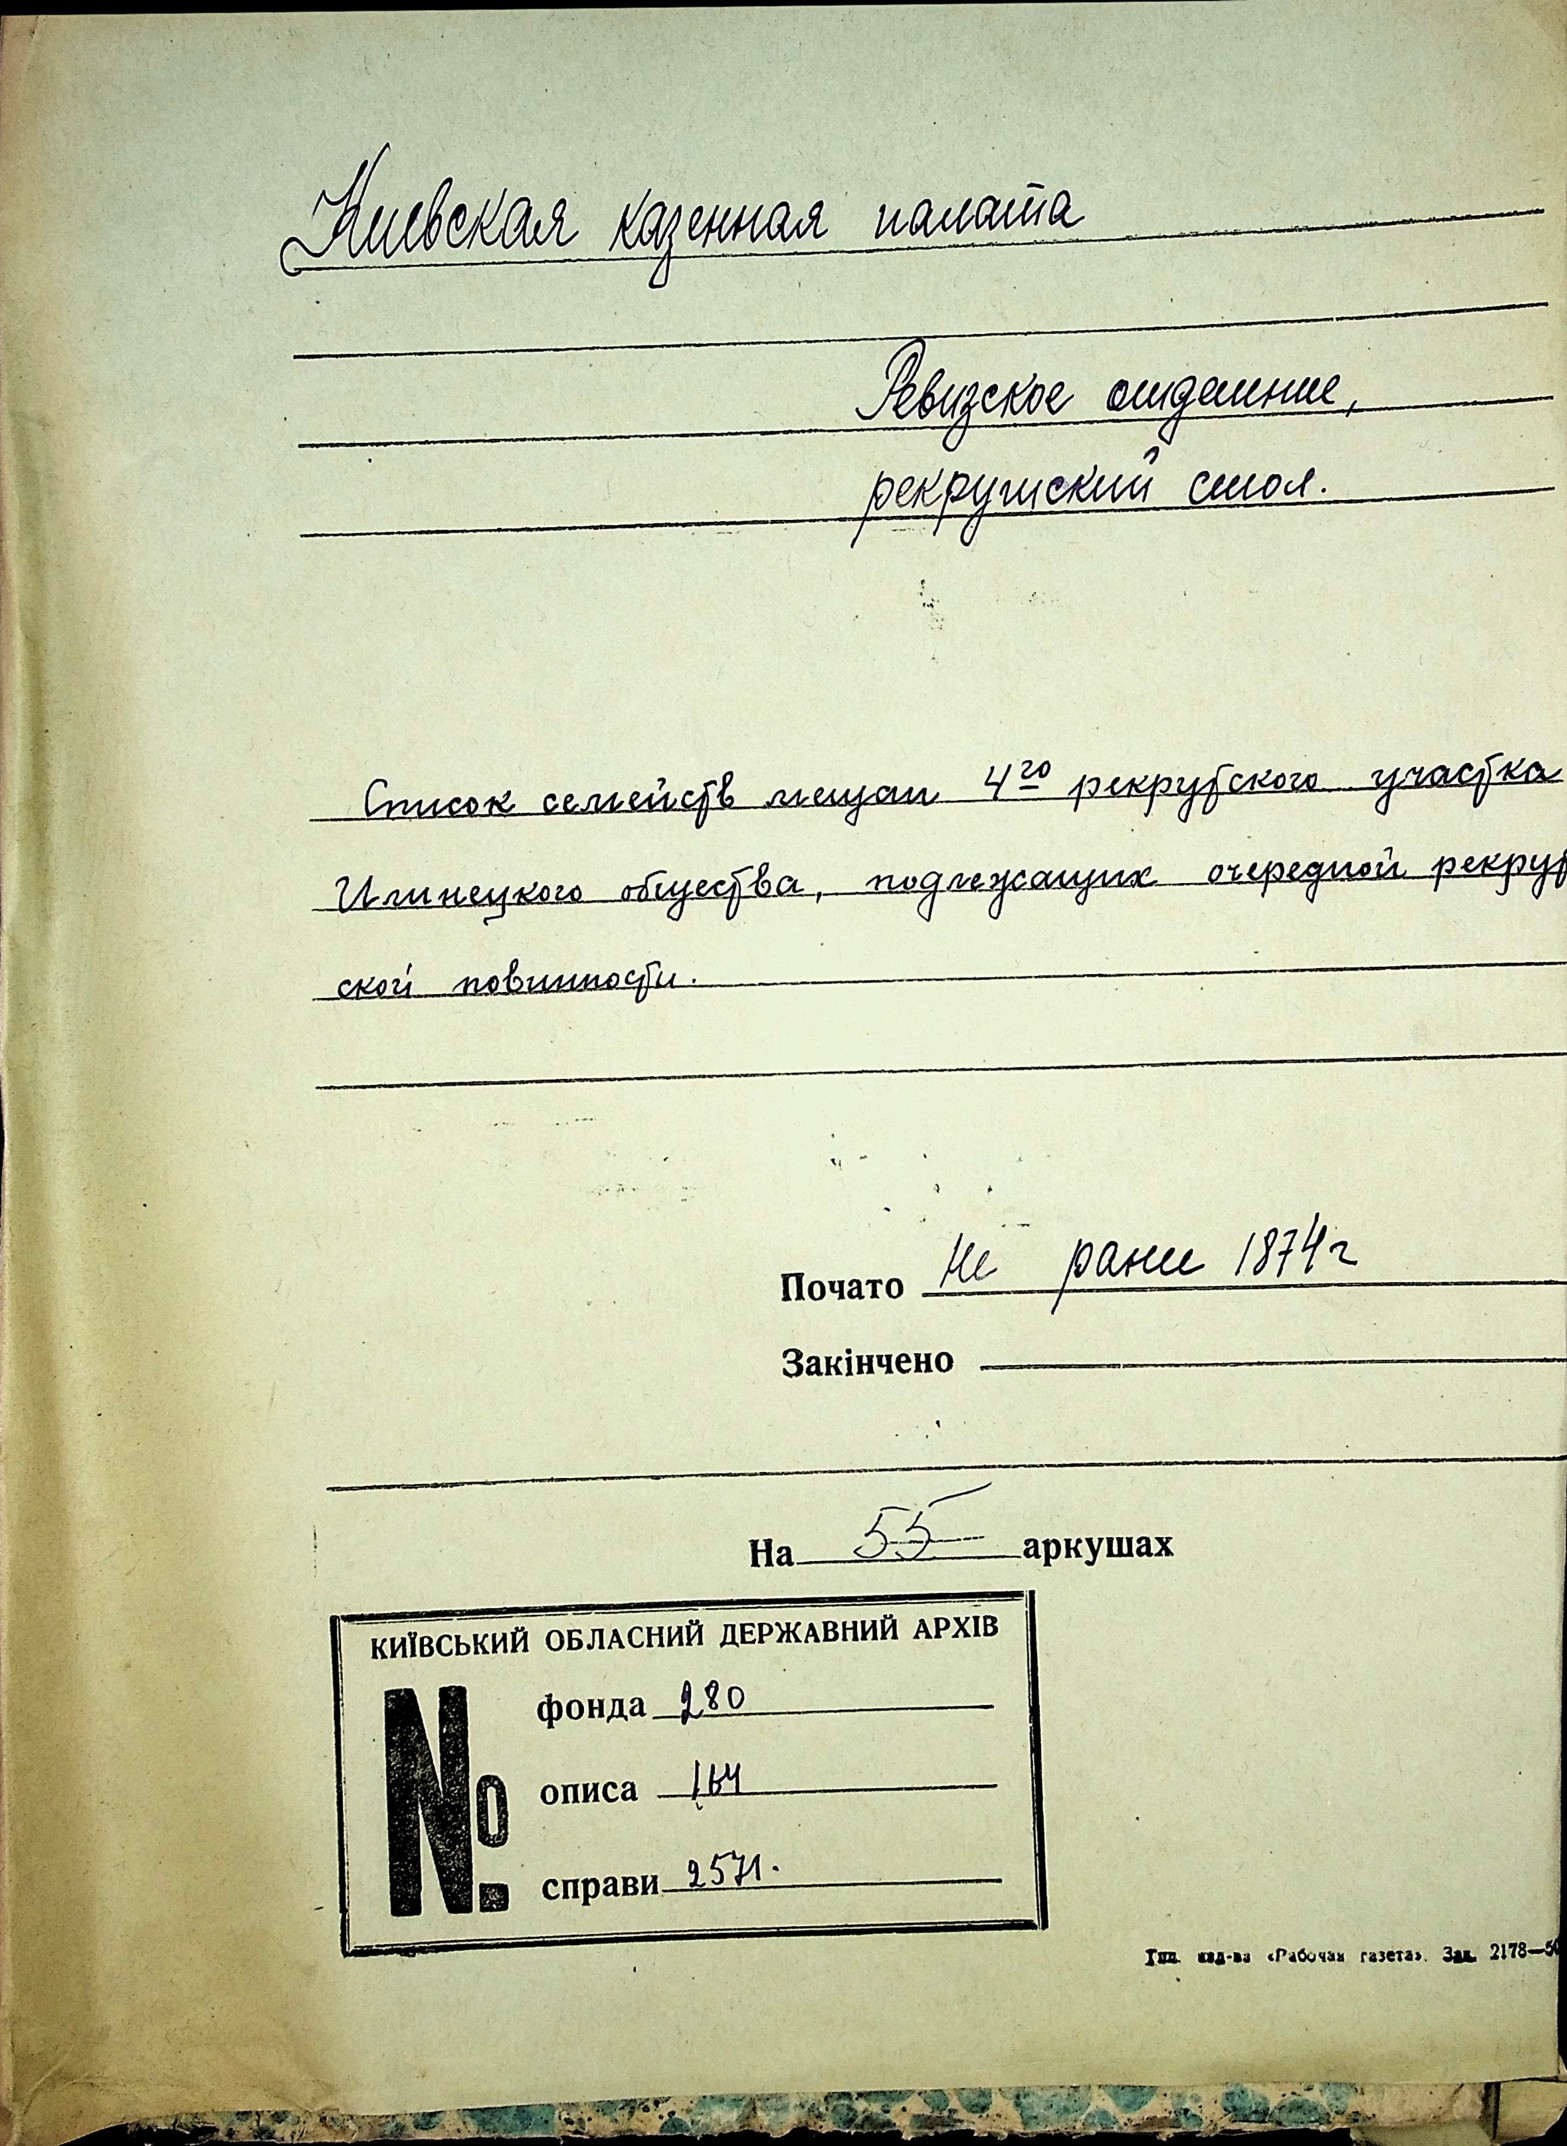 Киевская казенная палата
Ревизское отделение,
рекрутский стол.
Список семейств мещан 4го рекрутского участка
Илинецкого общества, подлежащих очередной рекрут
ской повинности.
Почато не ранее 1874 г
Закінчено
На 55 аркушах
КИЇВСЬКИЙ ОБЛАСНИЙ ДЕРЖАВНИЙ АРХІВ
№
фонда 280
описа 164
справи 2571.
Тип. изд-ва «Рабочая газета». Зак. 2178—50